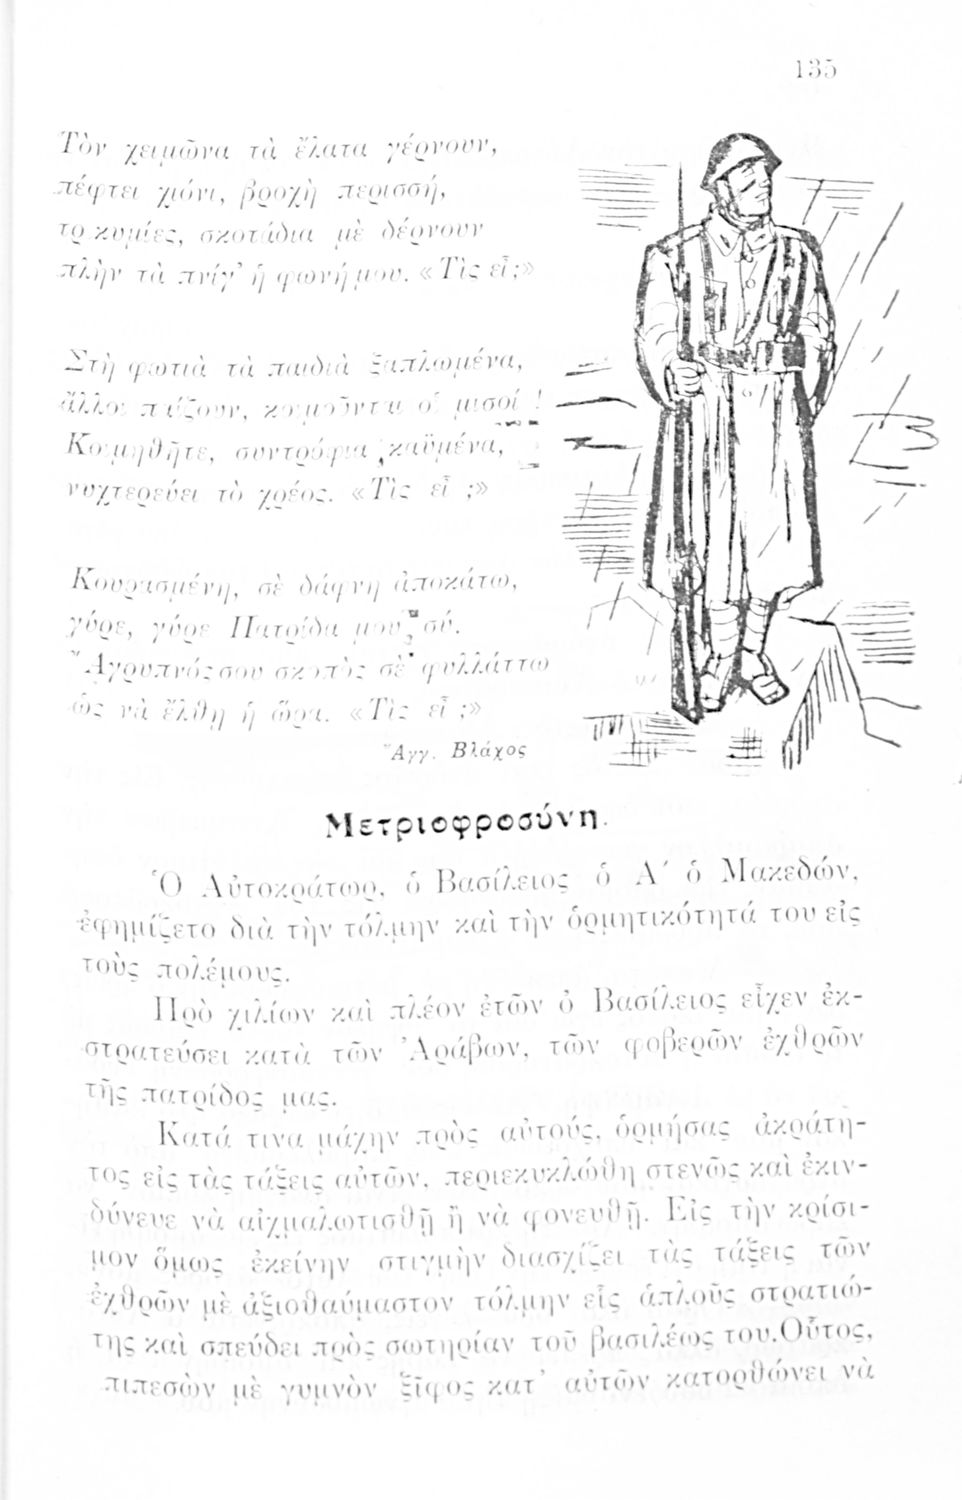 135
Τὸν χειμῶνα τὰ ἔλατα γέρνουν,
πέφτει χιόνι, βροχὴ περισσή,
τρικυμίες, σκοτάδια μὲ δέρνουν
πλὴν τὰ πνίγ' ἡ φωνή μου. «Τὶς εἶ;»
Στὴ φωτιὰ τὰ παιδιὰ ξαπλωμένα,
ἄλλοι παίζουν, κοιμοῦνται οἱ μισοί !
Κοιμηθῆτε, συντρόφια καϋμένα,
νυχτερεύει τὸ χρέος. «Τὶς εἶ ;»
Κουρασμένη, σὲ δάφνη ἀποκάτω,
γύρε, γύρε Πατρίδα μου, σύ.
Ἄγρυπνός σου σκοπὸς σὲ φυλλάττω
ὡς νὰ ἔλθη ἡ ὥρα. «Τὶς εἶ ;»
Ἄγγ. Βλάχος
Μετριοφροσύνη.
Ὁ Αὐτοκράτωρ, ὁ Βασίλειος ὁ Α΄ ὁ Μακεδών,
ἐφημίζετο διὰ τὴν τόλμην καὶ τὴν ὁρμητικότητά του εἰς
τοὺς πολέμους.
Πρὸ χιλίων καὶ πλέον ἐτῶν ὁ Βασίλειος εἶχεν ἐκ-
στρατεύσει κατὰ τῶν Ἀράβων, τῶν φοβερῶν ἐχθρῶν
τῆς πατρίδος μας.
Κατά τινα μάχην πρὸς αὐτούς, ὁρμήσας ἀκράτη-
τος εἰς τὰς τάξεις αὐτῶν, περιεκυκλώθη στενῶς καὶ ἐκιν-
δύνευε νὰ αἰχμαλωτισθῇ ἢ νὰ φονευθῇ. Εἰς τὴν κρίσι-
μον ὅμως ἐκείνην στιγμὴν διασχίζει τὰς τάξεις τῶν
ἐχθρῶν μὲ ἀξιοθαύμαστον τόλμην εἷς ἁπλοῦς στρατιώ-
της καὶ σπεύδει πρὸς σωτηρίαν τοῦ βασιλέως του. Οὗτος,
πιπεσὼν μὲ γυμνὸν ξίφος κατ' αὐτῶν κατορθώνει νὰ